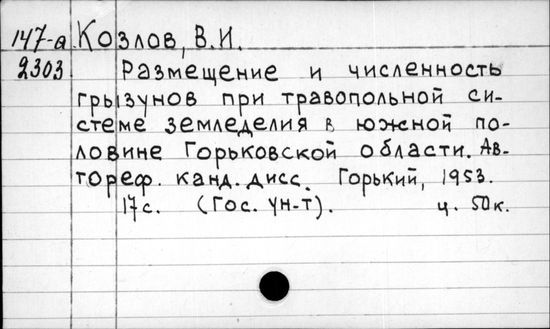 147-а Козлов, В.И.
2303 Размещение и численность
грызунов при травопольной си-
стеме земледелия в южной по-
ловине Горьковской области. Ав-
тореф. канд. дисс. Горький, 1953.
17 с. (Гос. ун-т). ц. 50к.